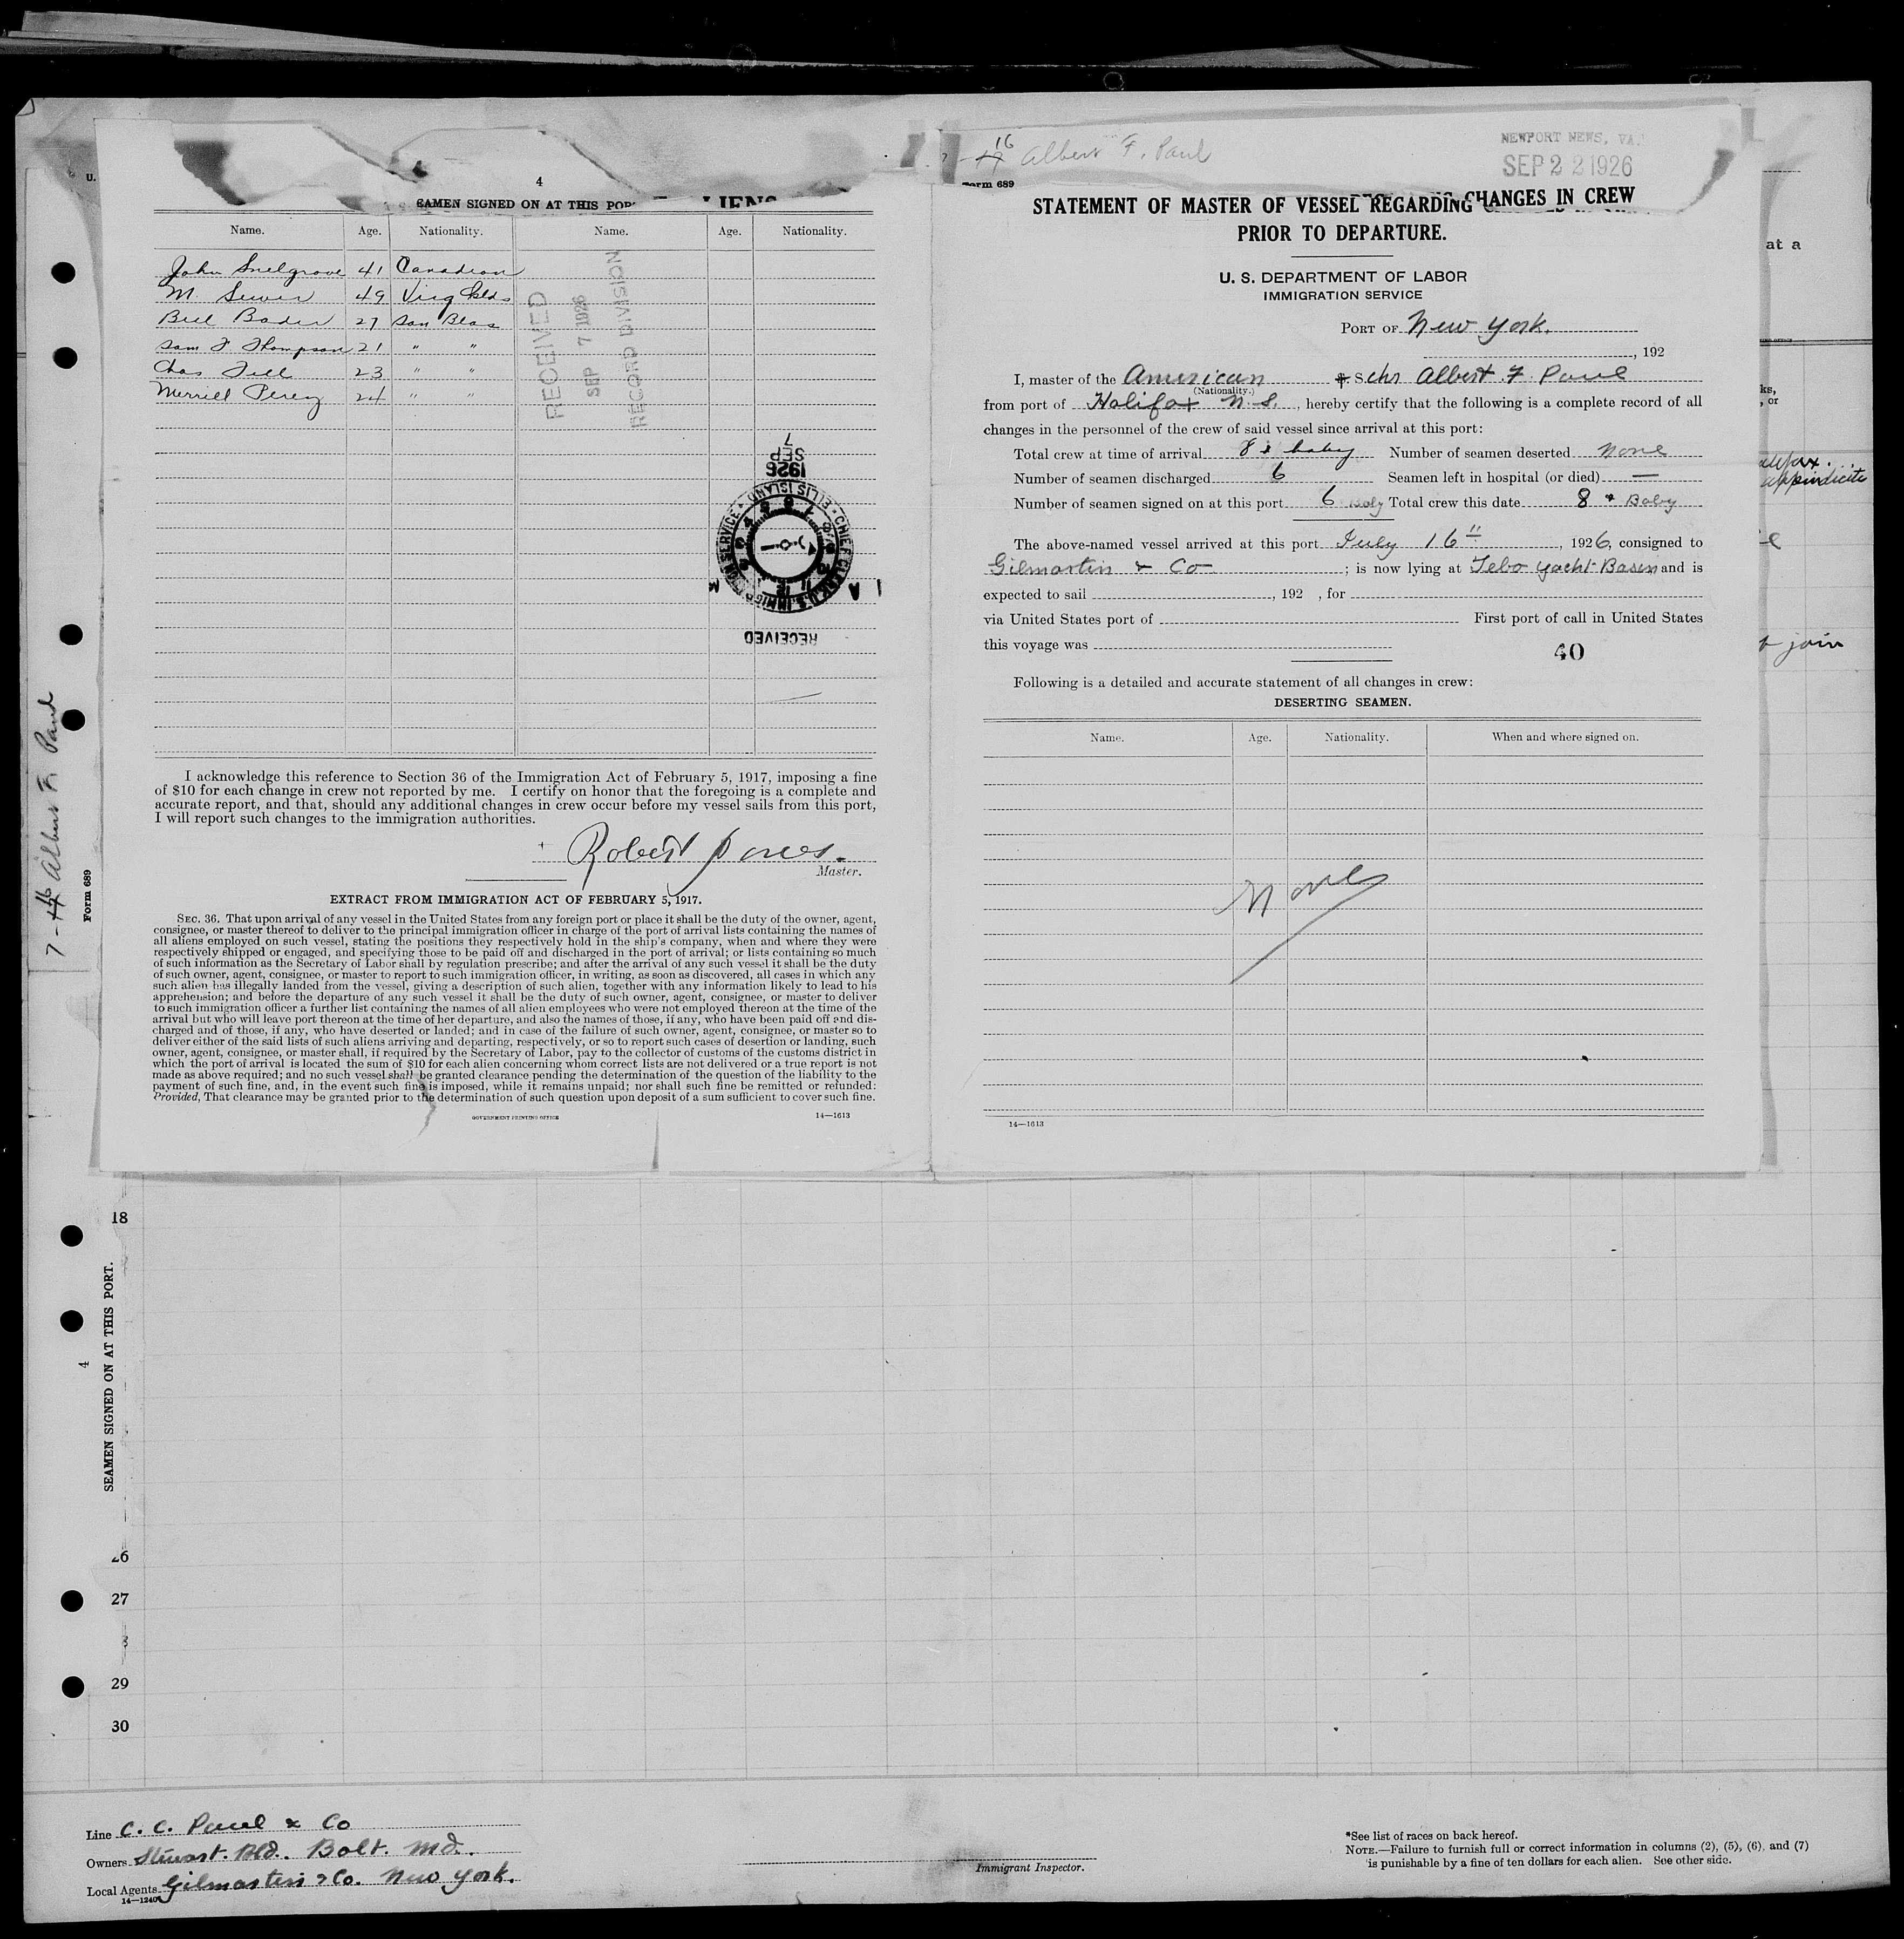 U.
4
SEAMEN SIGNED ON AT THIS POR
LIENS
Name. Age. Nationality. Name. Age. Nationality.
John Snelgrove 41 Canadian
M. 49 Virg Islds
Bill 27 San Blas
Sam F Thompson 21 " "
Chas 23 " "
Merrill Perez 24 " "
RECEIVED
SEP 7 1926
RECORD DIVISION
SEP 7
1926
CHIEF CLERK U.S. IMMIGRATION SERVICE · ELLIS ISLAND
A M
RECEIVED
I acknowledge this reference to Section 36 of the Immigration Act of February 5, 1917, imposing a fine
of $10 for each change in crew not reported by me. I certify on honor that the foregoing is a complete and
accurate report, and that, should any additional changes in crew occur before my vessel sails from this port,
I will report such changes to the immigration authorities.
Robert Jones.
Master.
EXTRACT FROM IMMIGRATION ACT OF FEBRUARY 5, 1917.
SEC. 36. That upon arrival of any vessel in the United States from any foreign port or place it shall be the duty of the owner, agent,
consignee, or master thereof to deliver to the principal immigration officer in charge of the port of arrival lists containing the names of
all aliens employed on such vessel, stating the positions they respectively hold in the ship's company, when and where they were
respectively shipped or engaged, and specifying those to be paid off and discharged in the port of arrival; or lists containing so much
of such information as the Secretary of Labor shall by regulation prescribe; and after the arrival of any such vessel it shall be the duty
of such owner, agent, consignee, or master to report to such immigration officer, in writing, as soon as discovered, all cases in which any
such alien has illegally landed from the vessel, giving a description of such alien, together with any information likely to lead to his
apprehension; and before the departure of any such vessel it shall be the duty of such owner, agent, consignee, or master to deliver
to such immigration officer a further list containing the names of all alien employees who were not employed thereon at the time of the
arrival but who will leave port thereon at the time of her departure, and also the names of those, if any, who have been paid off and dis-
charged and of those, if any, who have deserted or landed; and in case of the failure of such owner, agent, consignee, or master so to
deliver either of the said lists of such aliens arriving and departing, respectively, or so to report such cases of desertion or landing, such
owner, agent, consignee, or master shall, if required by the Secretary of Labor, pay to the collector of customs of the customs district in
which the port of arrival is located the sum of $10 for each alien concerning whom correct lists are not delivered or a true report is not
made as above required; and no such vessel shall be granted clearance pending the determination of the question of the liability to the
payment of such fine, and, in the event such fine is imposed, while it remains unpaid; nor shall such fine be remitted or refunded:
Provided, That clearance may be granted prior to the determination of such question upon deposit of a sum sufficient to cover such fine.
GOVERNMENT PRINTING OFFICE 14—1613
7-16 Albert F. Paul
Form 689
16 Albert F. Paul
NEWPORT NEWS, VA.
SEP 22 1926
Form 689
STATEMENT OF MASTER OF VESSEL REGARDING CHANGES IN CREW
PRIOR TO DEPARTURE.
U. S. DEPARTMENT OF LABOR
IMMIGRATION SERVICE
PORT OF New York.
, 192
I, master of the American S Schr Albert F. Paul
(Nationality.)
from port of Halifax N.S., hereby certify that the following is a complete record of all
changes in the personnel of the crew of said vessel since arrival at this port:
Total crew at time of arrival 8 & baby Number of seamen deserted None
Number of seamen discharged 6 Seamen left in hospital (or died) —
Number of seamen signed on at this port 6 Baby Total crew this date 8 & Baby
The above-named vessel arrived at this port July 16th, 1926, consigned to
Gilmartin & Co; is now lying at Tebo Yacht Basin and is
expected to sail , 192 , for
via United States port of First port of call in United States
this voyage was
40
Following is a detailed and accurate statement of all changes in crew:
DESERTING SEAMEN.
Name. Age. Nationality. When and where signed on.
None
14—1613
at a
ks,
, or
appindicite
join
18
SEAMEN SIGNED ON AT THIS PORT.
4
26
27
29
30
Line C. C. Paul & Co
Owners Stewart. Bld. Balt. Md.
Local Agents Gilmartin & Co. New York.
14—1240
Immigrant Inspector.
*See list of races on back hereof.
NOTE.—Failure to furnish full or correct information in columns (2), (5), (6), and (7)
is punishable by a fine of ten dollars for each alien. See other side.